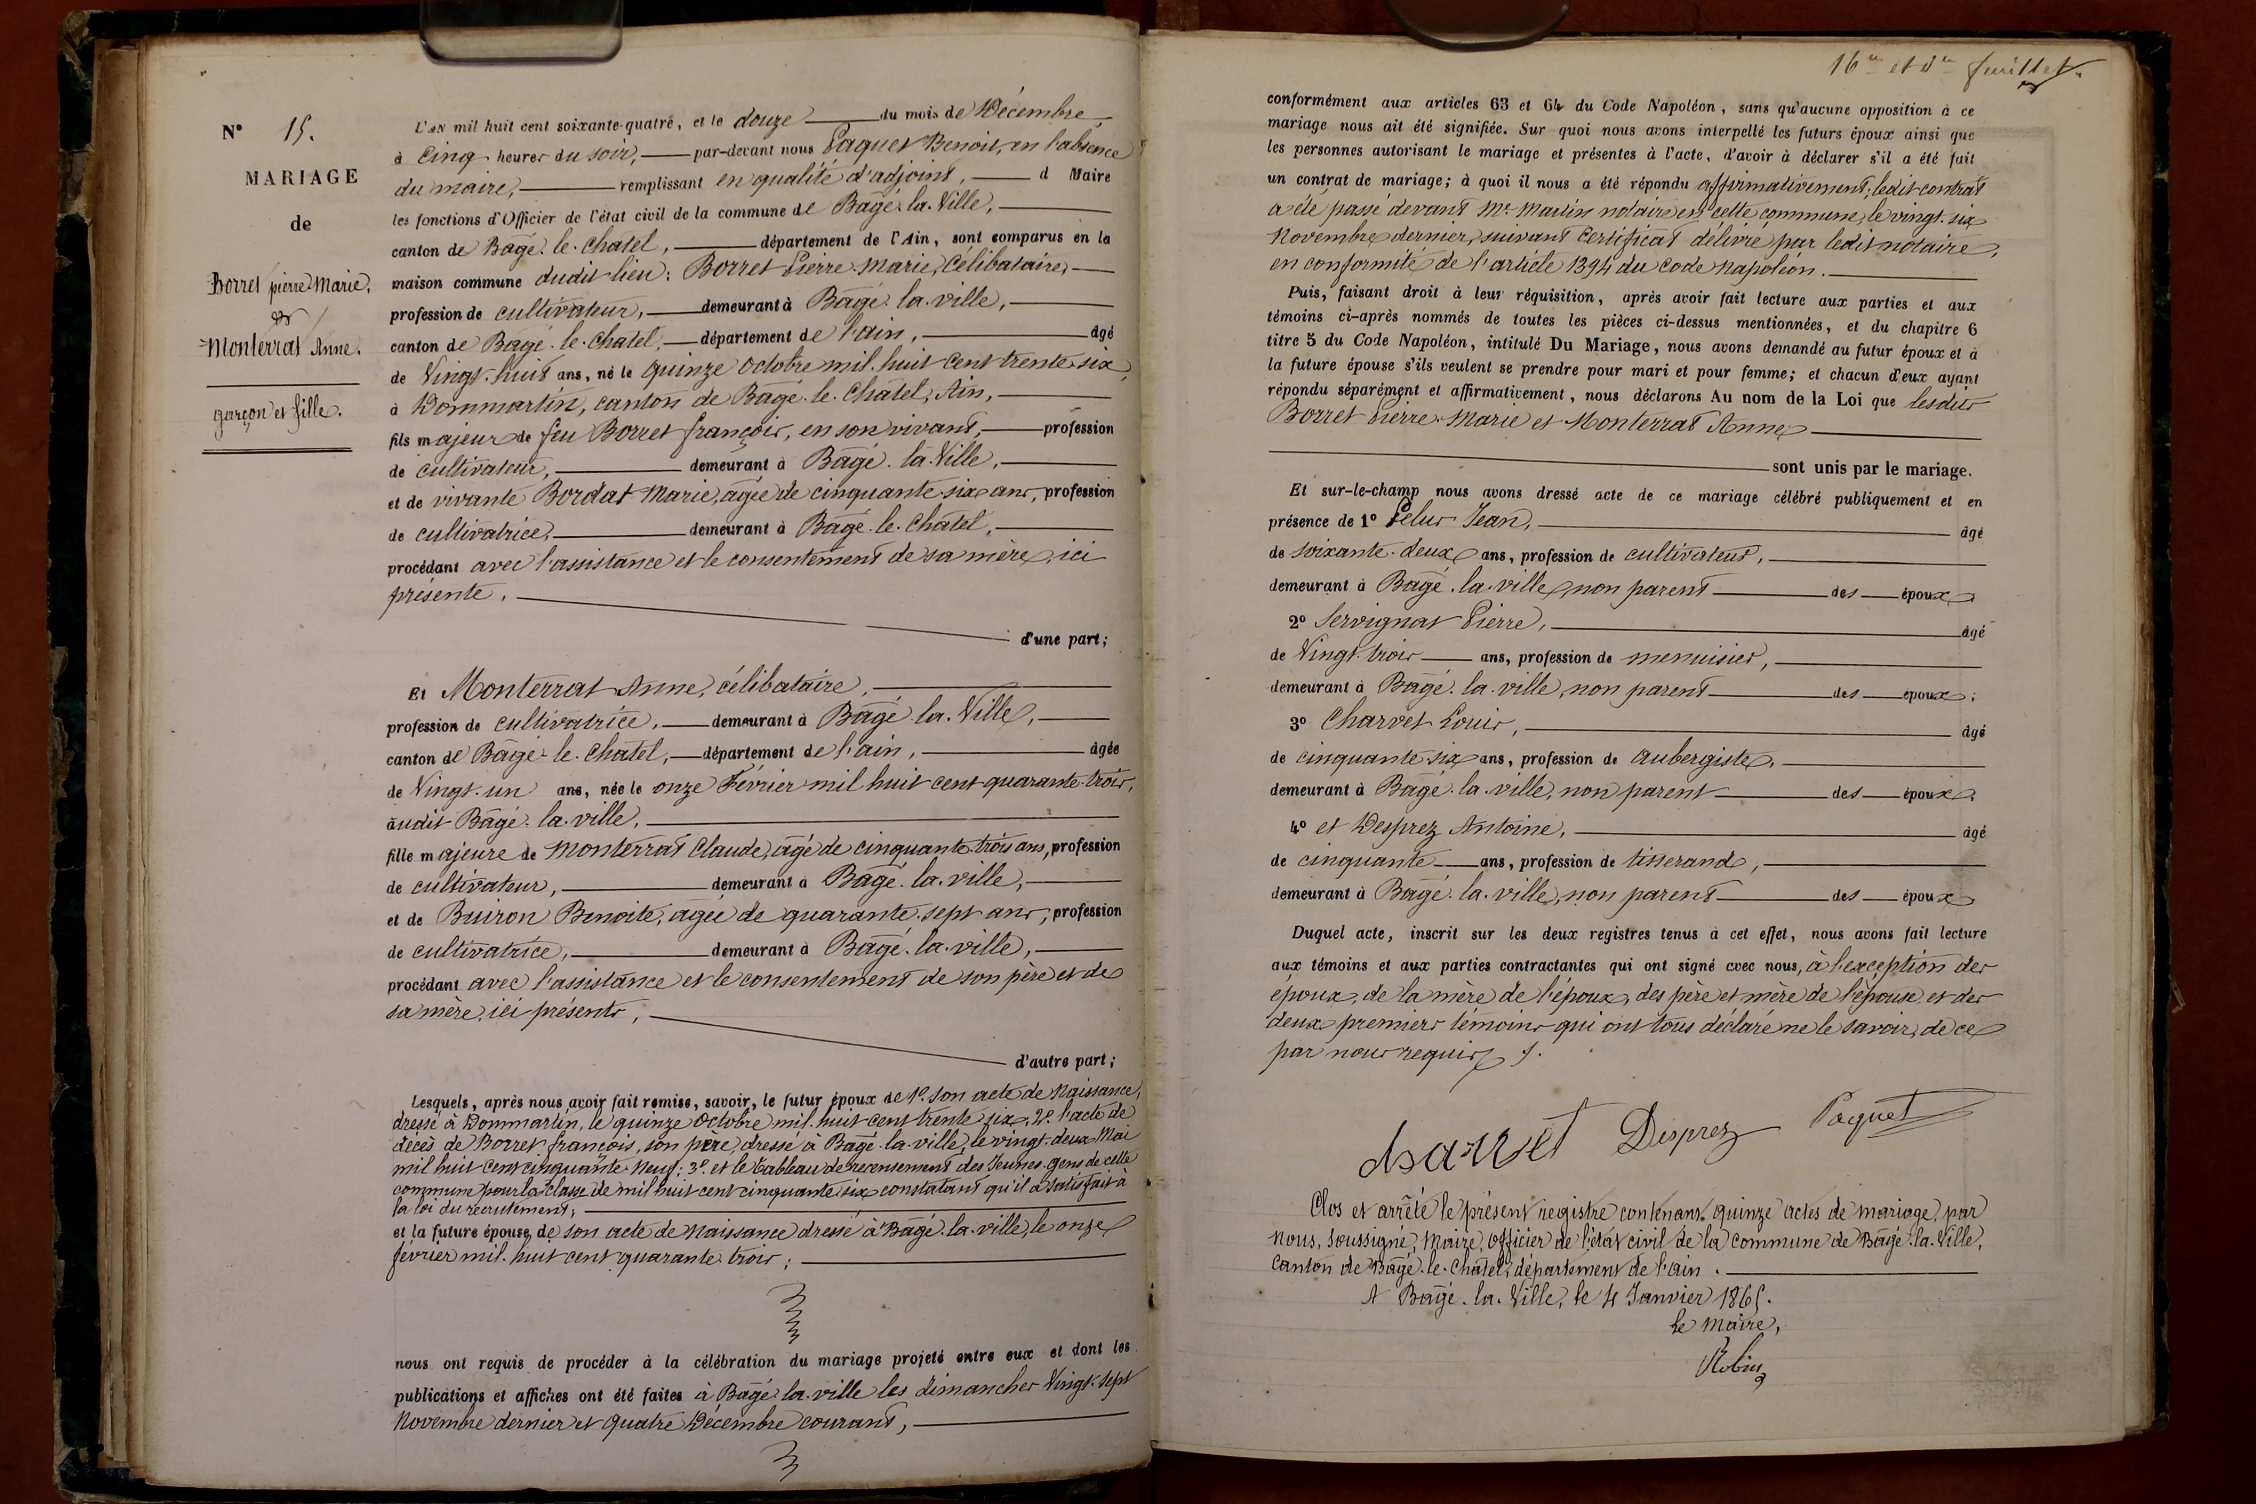 N° 15.
MARIAGE
de
Borret pierre Marie,
et
Monterrat Anne.
garçon et fille.
L'AN mil huit cent soixante-quatre, et le douze du mois de Décembre,
à cinq heures du soir, par-devant nous Paquet Benoit, en l'absence
du maire, remplissant en qualité d'adjoint, d Maire
les fonctions d'Officier de l'état civil de la commune de Bâgé-la-Ville,
canton de Bâgé-le-Châtel, département de l'Ain, sont comparus en la
maison commune dudit lieu: Borret Pierre-Marie, Célibataire,
profession de cultivateur, demeurant à Bâgé-la-ville,
canton de Bâgé-le-Châtel, département de l'ain, âgé
de Vingt-huit ans, né le quinze octobre mil-huit cent trente-six,
à Dommartin, canton de Bâgé-le-Châtel, Ain,
fils majeur de feu Borret françois, en son vivant, profession
de cultivateur, demeurant à Bâgé-la-Ville,
et de vivante Bordat Marie, âgée de cinquante-six ans, profession
de cultivatrice, demeurant à Bâgé-le-Châtel,
procédant avec l'assistance et le consentement de sa mère, ici
présente,
d'une part;
Et Monterrat Anne, célibataire,
profession de cultivatrice, demeurant à Bâgé-la-Ville,
canton de Bâgé-le-Châtel, département de l'ain, âgée
de Vingt-un ans, née le onze Février mil huit cent quarante-trois,
audit Bâgé-la-ville,
fille majeure de Monterrat Claude, âgé de cinquante-trois ans, profession
de cultivateur, demeurant à Bâgé-la-ville,
et de Buiron Benoite, âgée de quarante-sept ans, profession
de cultivatrice, demeurant à Bâgé-la-ville,
procédant avec l'assistance et le consentement de son père et de
sa mère, ici présents,
d'autre part;
Lesquels, après nous avoir fait remise, savoir, le futur époux de 1° son acte de Naissance,
dressé à Dommartin, le quinze Octobre mil-huit-cent trente-six, 2° l'acte de
décès de Borret françois, son père, dressé à Bâgé-la-ville, le vingt-deux Mai
mil huit cent cinquante-neuf; 3° et le Tableau de recensement des Jeunes gens de cette
commune pour la classe de mil huit cent cinquante-six constatant qu'il a satisfait à
la loi du recrutement;
et la future épouse, de son acte de Naissance dressé à Bâgé-la-ville, le onze
février mil-huit cent quarante-trois;
nous ont requis de procéder à la célébration du mariage projeté entre eux et dont les
publications et affiches ont été faites à Bâgé-la-ville les dimanches Vingt-sept
Novembre dernier et quatre Décembre courant,
16me et der feuillet.
conformément aux articles 63 et 64 du Code Napoléon, sans qu'aucune opposition à ce
mariage nous ait été signifiée. Sur quoi nous avons interpellé les futurs époux ainsi que
les personnes autorisant le mariage et présentes à l'acte, d'avoir à déclarer s'il a été fait
un contrat de mariage; à quoi il nous a été répondu affirmativement; ledit contrat
a été passé devant Me Martin notaire en cette commune, le vingt-six
Novembre dernier, suivant Certificat délivré par ledit notaire,
en conformité de l'article 1394 du Code Napoléon.
Puis, faisant droit à leur réquisition, après avoir fait lecture aux parties et aux
témoins ci-après nommés de toutes les pièces ci-dessus mentionnées, et du chapitre 6
titre 5 du Code Napoléon, intitulé Du Mariage, nous avons demandé au futur époux et à
la future épouse s'ils veulent se prendre pour mari et pour femme; et chacun d'eux ayant
répondu séparément et affirmativement, nous déclarons Au nom de la Loi que lesdits
Borret Pierre-Marie et Monterrat Anne
sont unis par le mariage.
Et sur-le-champ nous avons dressé acte de ce mariage célébré publiquement et en
présence de 1° Pelus Jean, âgé
de soixante-deux ans, profession de cultivateur,
demeurant à Bâgé-la-ville, non parent des époux.
2° Servignat Pierre, âgé
de Vingt-trois ans, profession de menuisier,
demeurant à Bâgé-la-ville, non parent des époux;
3° Charvet Louis, âgé
de cinquante-six ans, profession de aubergiste,
demeurant à Bâgé-la-ville, non parent des époux.
4° et Desprez Antoine, âgé
de cinquante ans, profession de tisserand,
demeurant à Bâgé-la-ville, non parent des époux
Duquel acte, inscrit sur les deux registres tenus à cet effet, nous avons fait lecture
aux témoins et aux parties contractantes qui ont signé avec nous, à l'exception des
époux, de la mère de l'époux, des père et mère de l'épouse, et des
deux premiers témoins qui ont tous déclaré ne le savoir, de ce
par nous requis.
charvet Desprez Paquet
Clos et arrêté le présent registre contenant quinze actes de mariage, par
Nous, soussigné, Maire, officier de l'état civil de la commune de Bâgé-la-Ville,
Canton de Bâgé-le-Châtel, département de l'ain.
A Bâgé-la-Ville, le 4 Janvier 1865.
Le Maire,
Robin